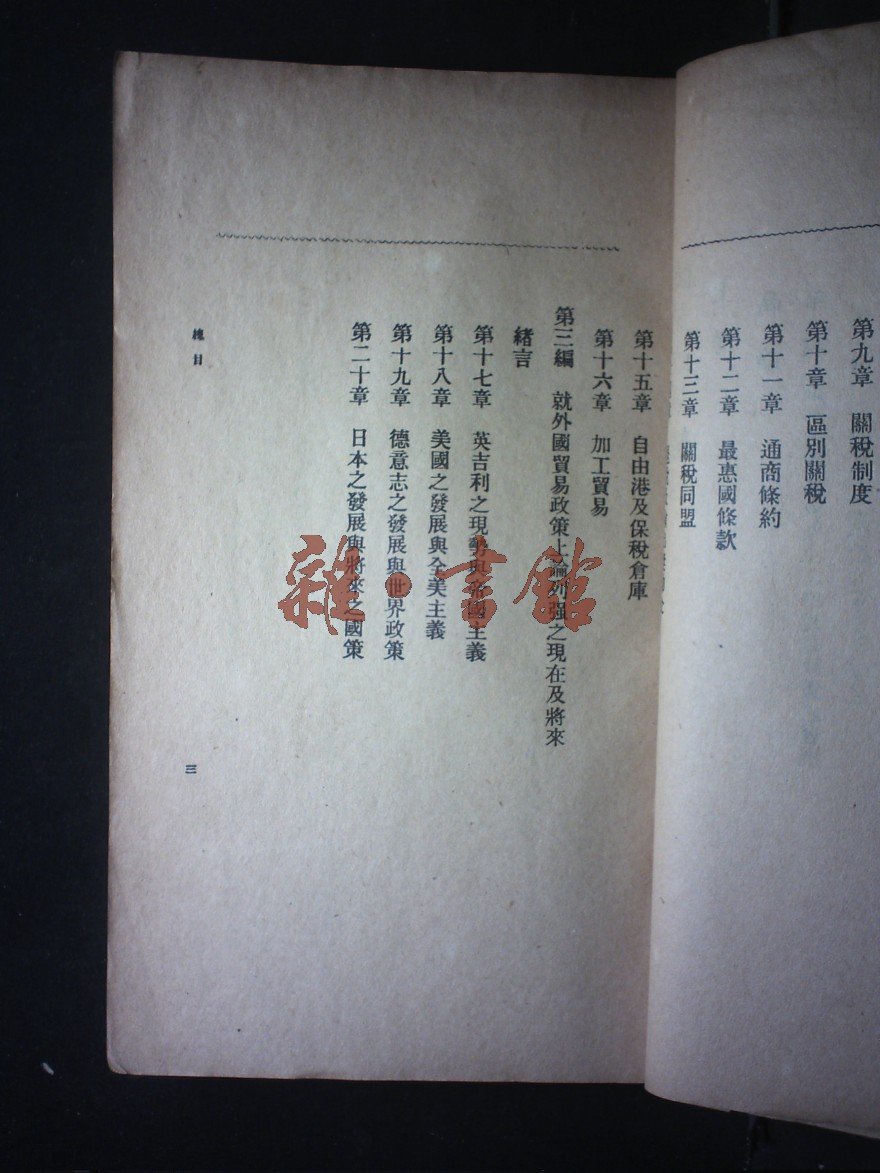 第九章　關稅制度
第十章　區別關稅
第十一章　通商條約
第十二章　最惠國條款
第十三章　關稅同盟
第十五章　自由港及保稅倉庫
第十六章　加工貿易
第三編　就外國貿易政策上論列强之現在及將來
緒言
第十七章　英吉利之現勢與帝國主義
第十八章　美國之發展與全美主義
第十九章　德意志之發展與世界政策
第二十章　日本之發展與將來之國策
總目
三
雜·書館